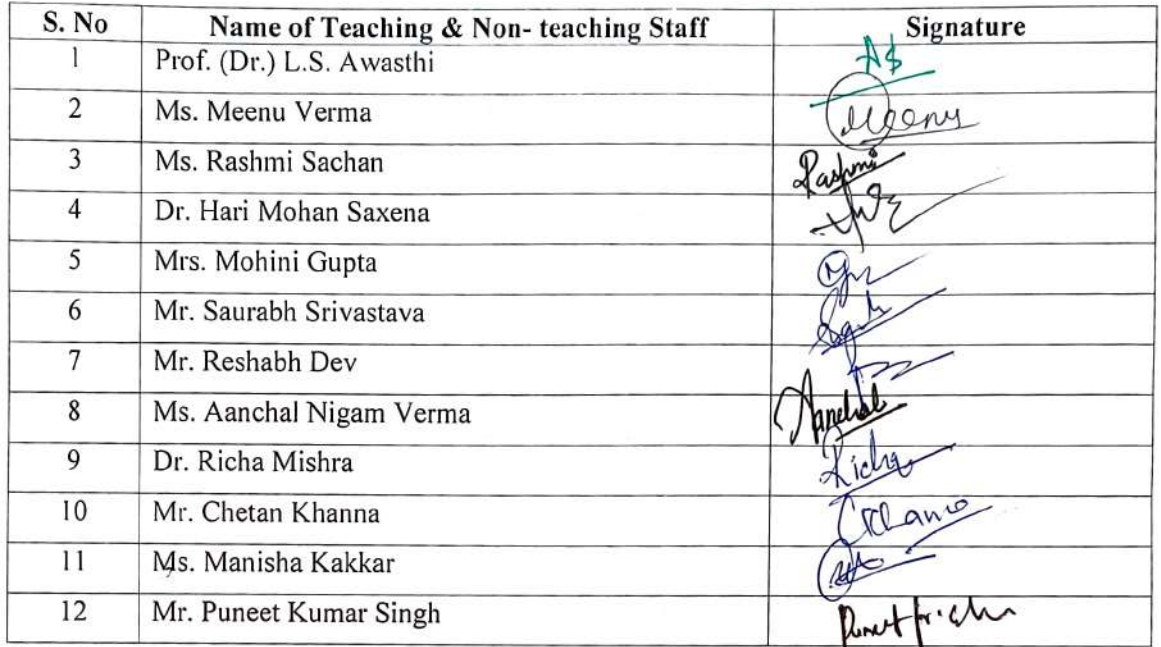 S. No Name of Teaching & Non- teaching Staff Signature
1 Prof. (Dr.) L.S. Awasthi
2 Ms. Meenu Verma Meenu
3 Ms. Rashmi Sachan Rashmi
4 Dr. Hari Mohan Saxena
5 Mrs. Mohini Gupta
6 Mr. Saurabh Srivastava
7 Mr. Reshabh Dev
8 Ms. Aanchal Nigam Verma Aanchal
9 Dr. Richa Mishra Richa
10 Mr. Chetan Khanna
11 Ms. Manisha Kakkar
12 Mr. Puneet Kumar Singh